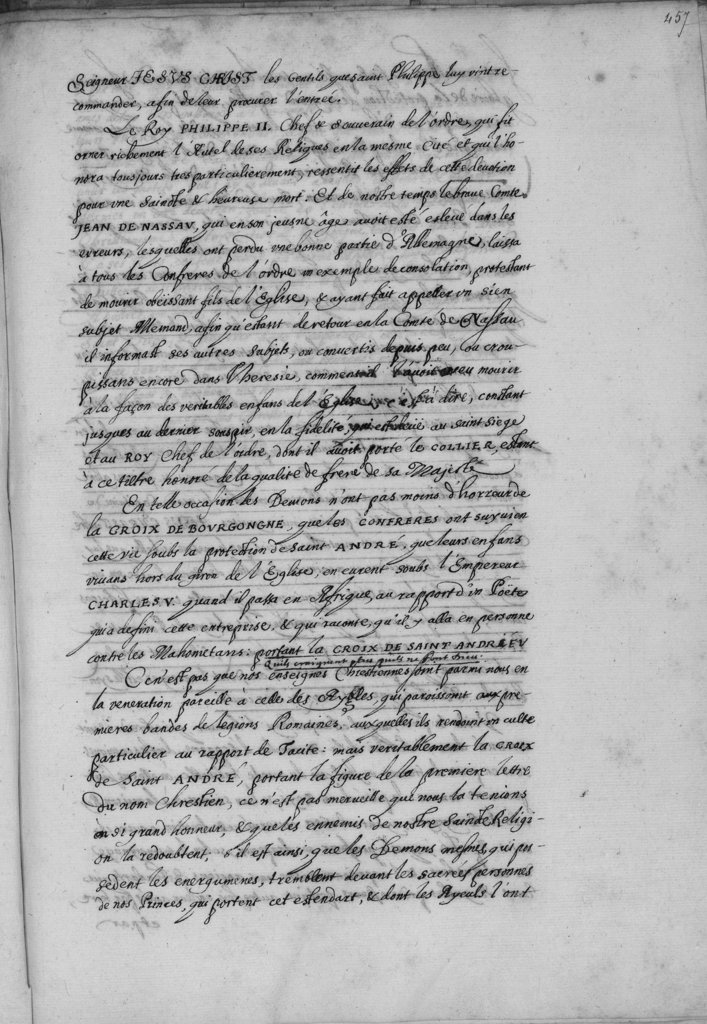 457
Seigneur JESVS CHRIST les Gentils que saint Philippe luy vint re-
commander, afin de leur procurer l'entree.
Le Roy PHILIPPE II. Chef & Souuerain de l'ordre, qui fit
orner richement l'Autel de ses Reliques en la mesme et qui l'ho-
nora tousjours tres particulierement, ressentit les effets de cette deuotion
pour vne saincte & heureuse mort. Et de nostre temps le braue Comte
JEAN DE NASSAV, qui en son jeusne âge auoit esté esleué dans les
erreurs, lesquelles ont perdu vne bonne partie d'Allemagne, laissa
à tous les Confreres de l'ordre vn exemple de consolation, protestant
de mourir obeissant fils de l'Eglise, & ayant fait appeller vn sien
subjet Allemand, afin qu'estant de retour en la Comté de Nassau
il informast ses autres subjets, ou conuertis depuis peu, ou crou-
pissans encore dans l'heresie, comment il l'auoit veu mourir
à la façon des veritables enfans de l'Eglise, c'est à dire, constant
jusques au dernier souspir, en la fidelité, au saint Siege
et au ROY Chef de l'ordre, dont il auoit porté le COLLIER, estant
à ce tiltre honoré de la qualité de frere de sa Majesté.
En telle occasion les Demons n'ont pas moins d'horreur de
la CROIX DE BOVRGONGNE, que les CONFRERES ont suyui en
cette vie soubs la protection de saint ANDRÉ, que leurs enfans
viuans hors du giron de l'Eglise, en eurent soubs l'Empereur
CHARLES V. quand il passa en Afrique, au rapport d'vn Poëte
qui a defini cette entreprise, & qui raconte, qu'il y alla en personne
contre les Mahometans: portant la CROIX DE SAINT ANDRÉ
qu'ils craignent plus qu'ils ne font Dieu.
Ce n'est pas que nos enseignes soient parmi nous en
la veneration pareille à celle des Aygles, qui paroissoient aux pre-
mieres bandes de legions Romaines, auxquelles ils rendoient vn culte
particulier au rapport de Tacite: mais veritablement la CROIX
de Saint ANDRÉ, portant la figure de la premiere lettre
du nom Chrestien, ce n'est pas merueille que nous la tenions
en si grand honneur, & que les ennemis de nostre Saincte Religi-
on la redoubtent, s'il est ainsi, que les Demons mesmes, qui pos-
sedent les energumenes, tremblent deuant les sacrées personnes
de nos Princes, qui portent cet estendart, & dont les Ayeuls l'ont